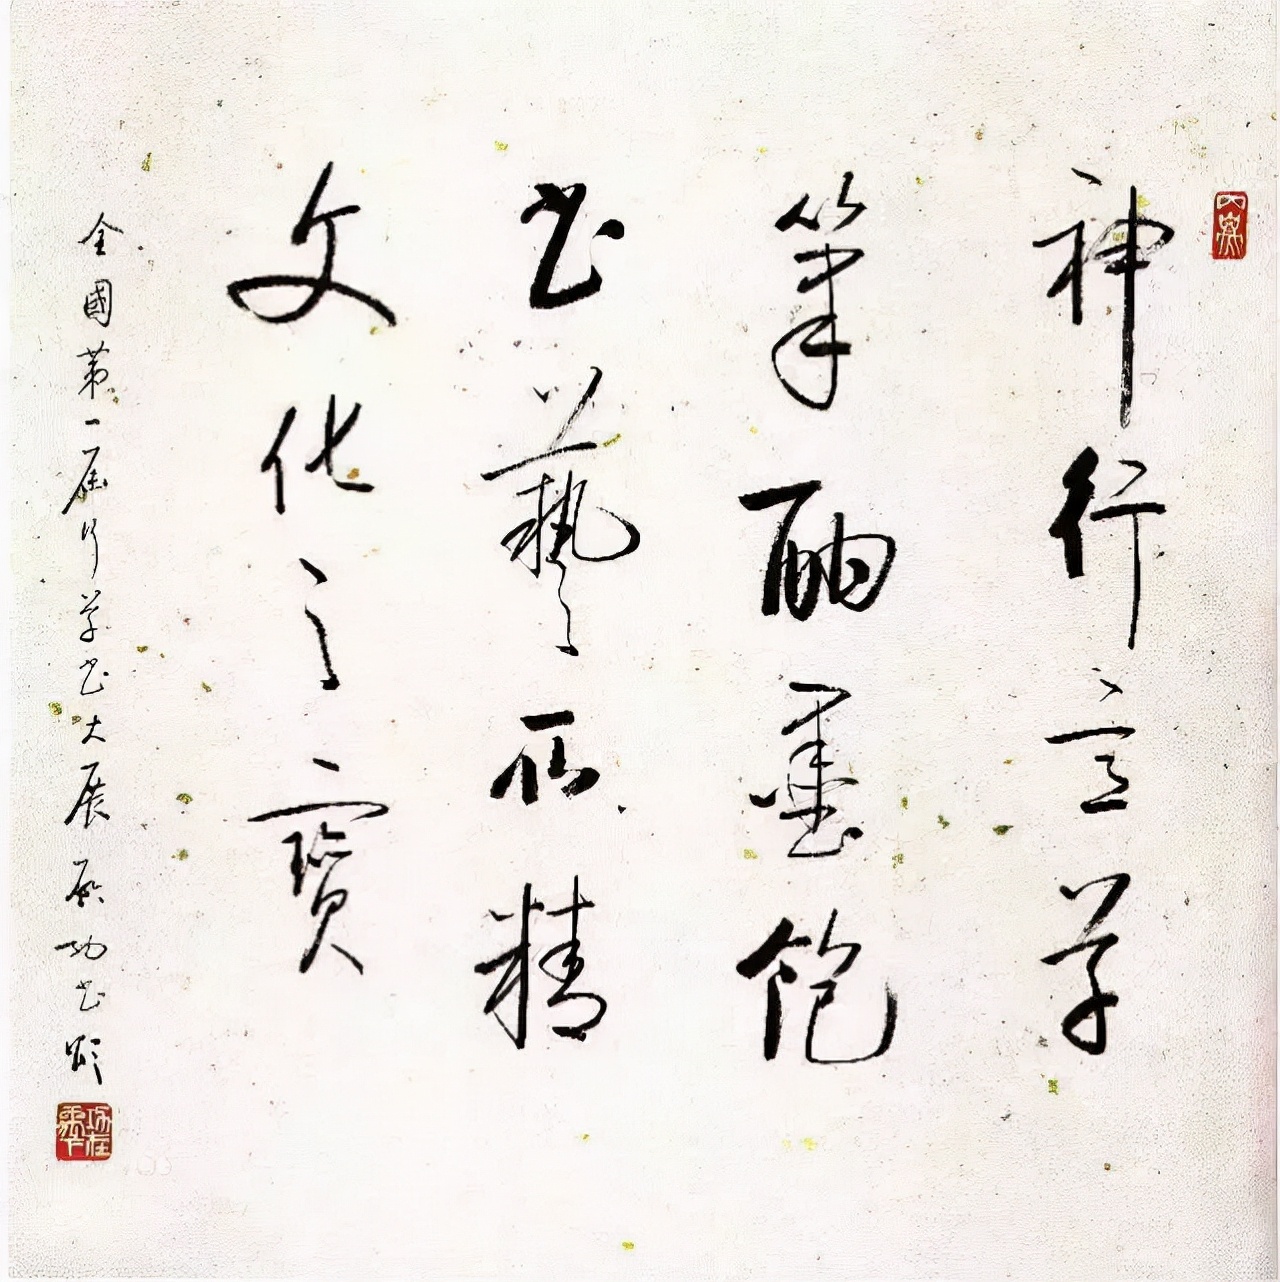 神行草
筆酣墨飽
書藝所精
文化之寶
全國第一屆行草書大展啟功書